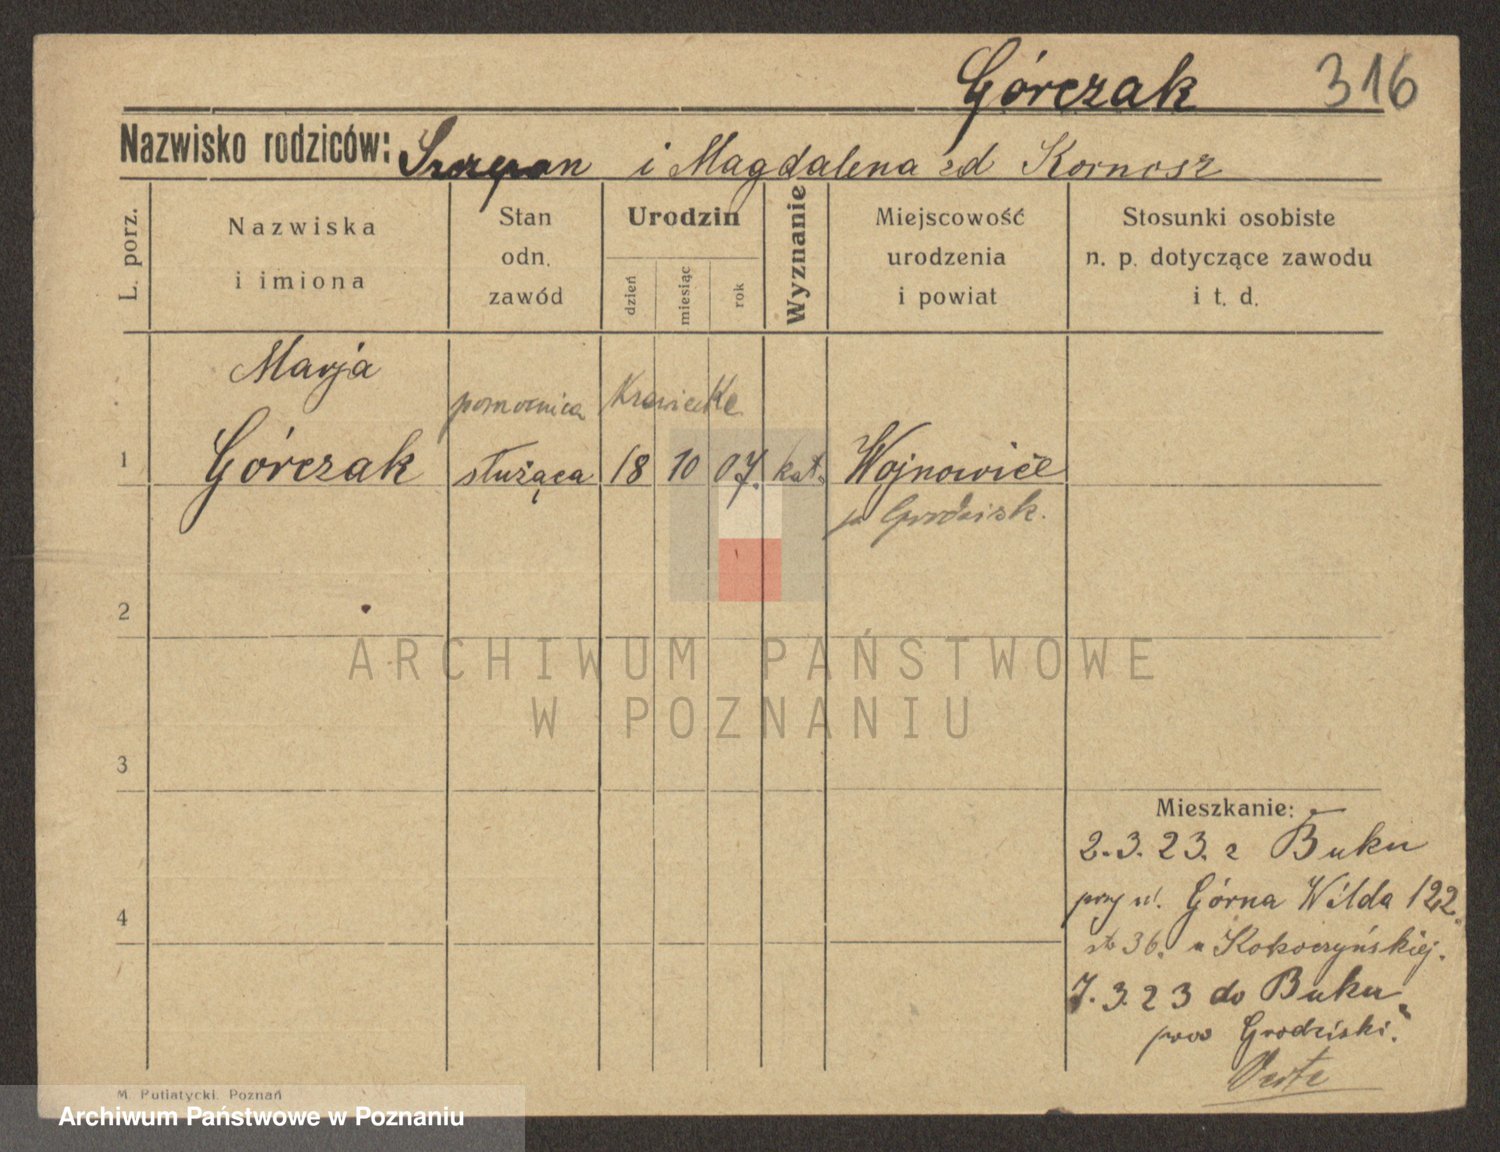 Górczak 316
Nazwisko rodziców: Szczepan i Magdalena zd Kornosz
L. porz.
Nazwiska
i imiona
Stan
odn.
zawód
Urodzin
dzień
miesiąc
rok
Wyznanie
Miejscowość
urodzenia
i powiat
Stosunki osobiste
n. p. dotyczące zawodu
i t. d.
Marja
pomocnica Krawiecke
1 Górczak służąca 18 10 07. kat. Wojnowice
p. Grodzisk.
2
ARCHIWUM PAŃSTWOWE
W POZNANIU
3
Mieszkanie:
2.3.23. z Buku
przy ul. Górna Wilda 122.
36. u Kokoczyńskiej.
4
7.3.23 do Buku,
pow Grodziski.
Verte
M. Putiatycki, Poznań
Archiwum Państwowe w Poznaniu